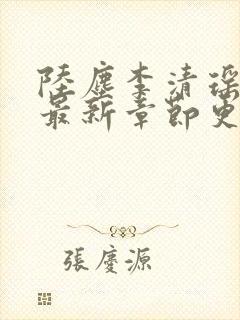 陸塵李清瑤
最新章節更
張慶源